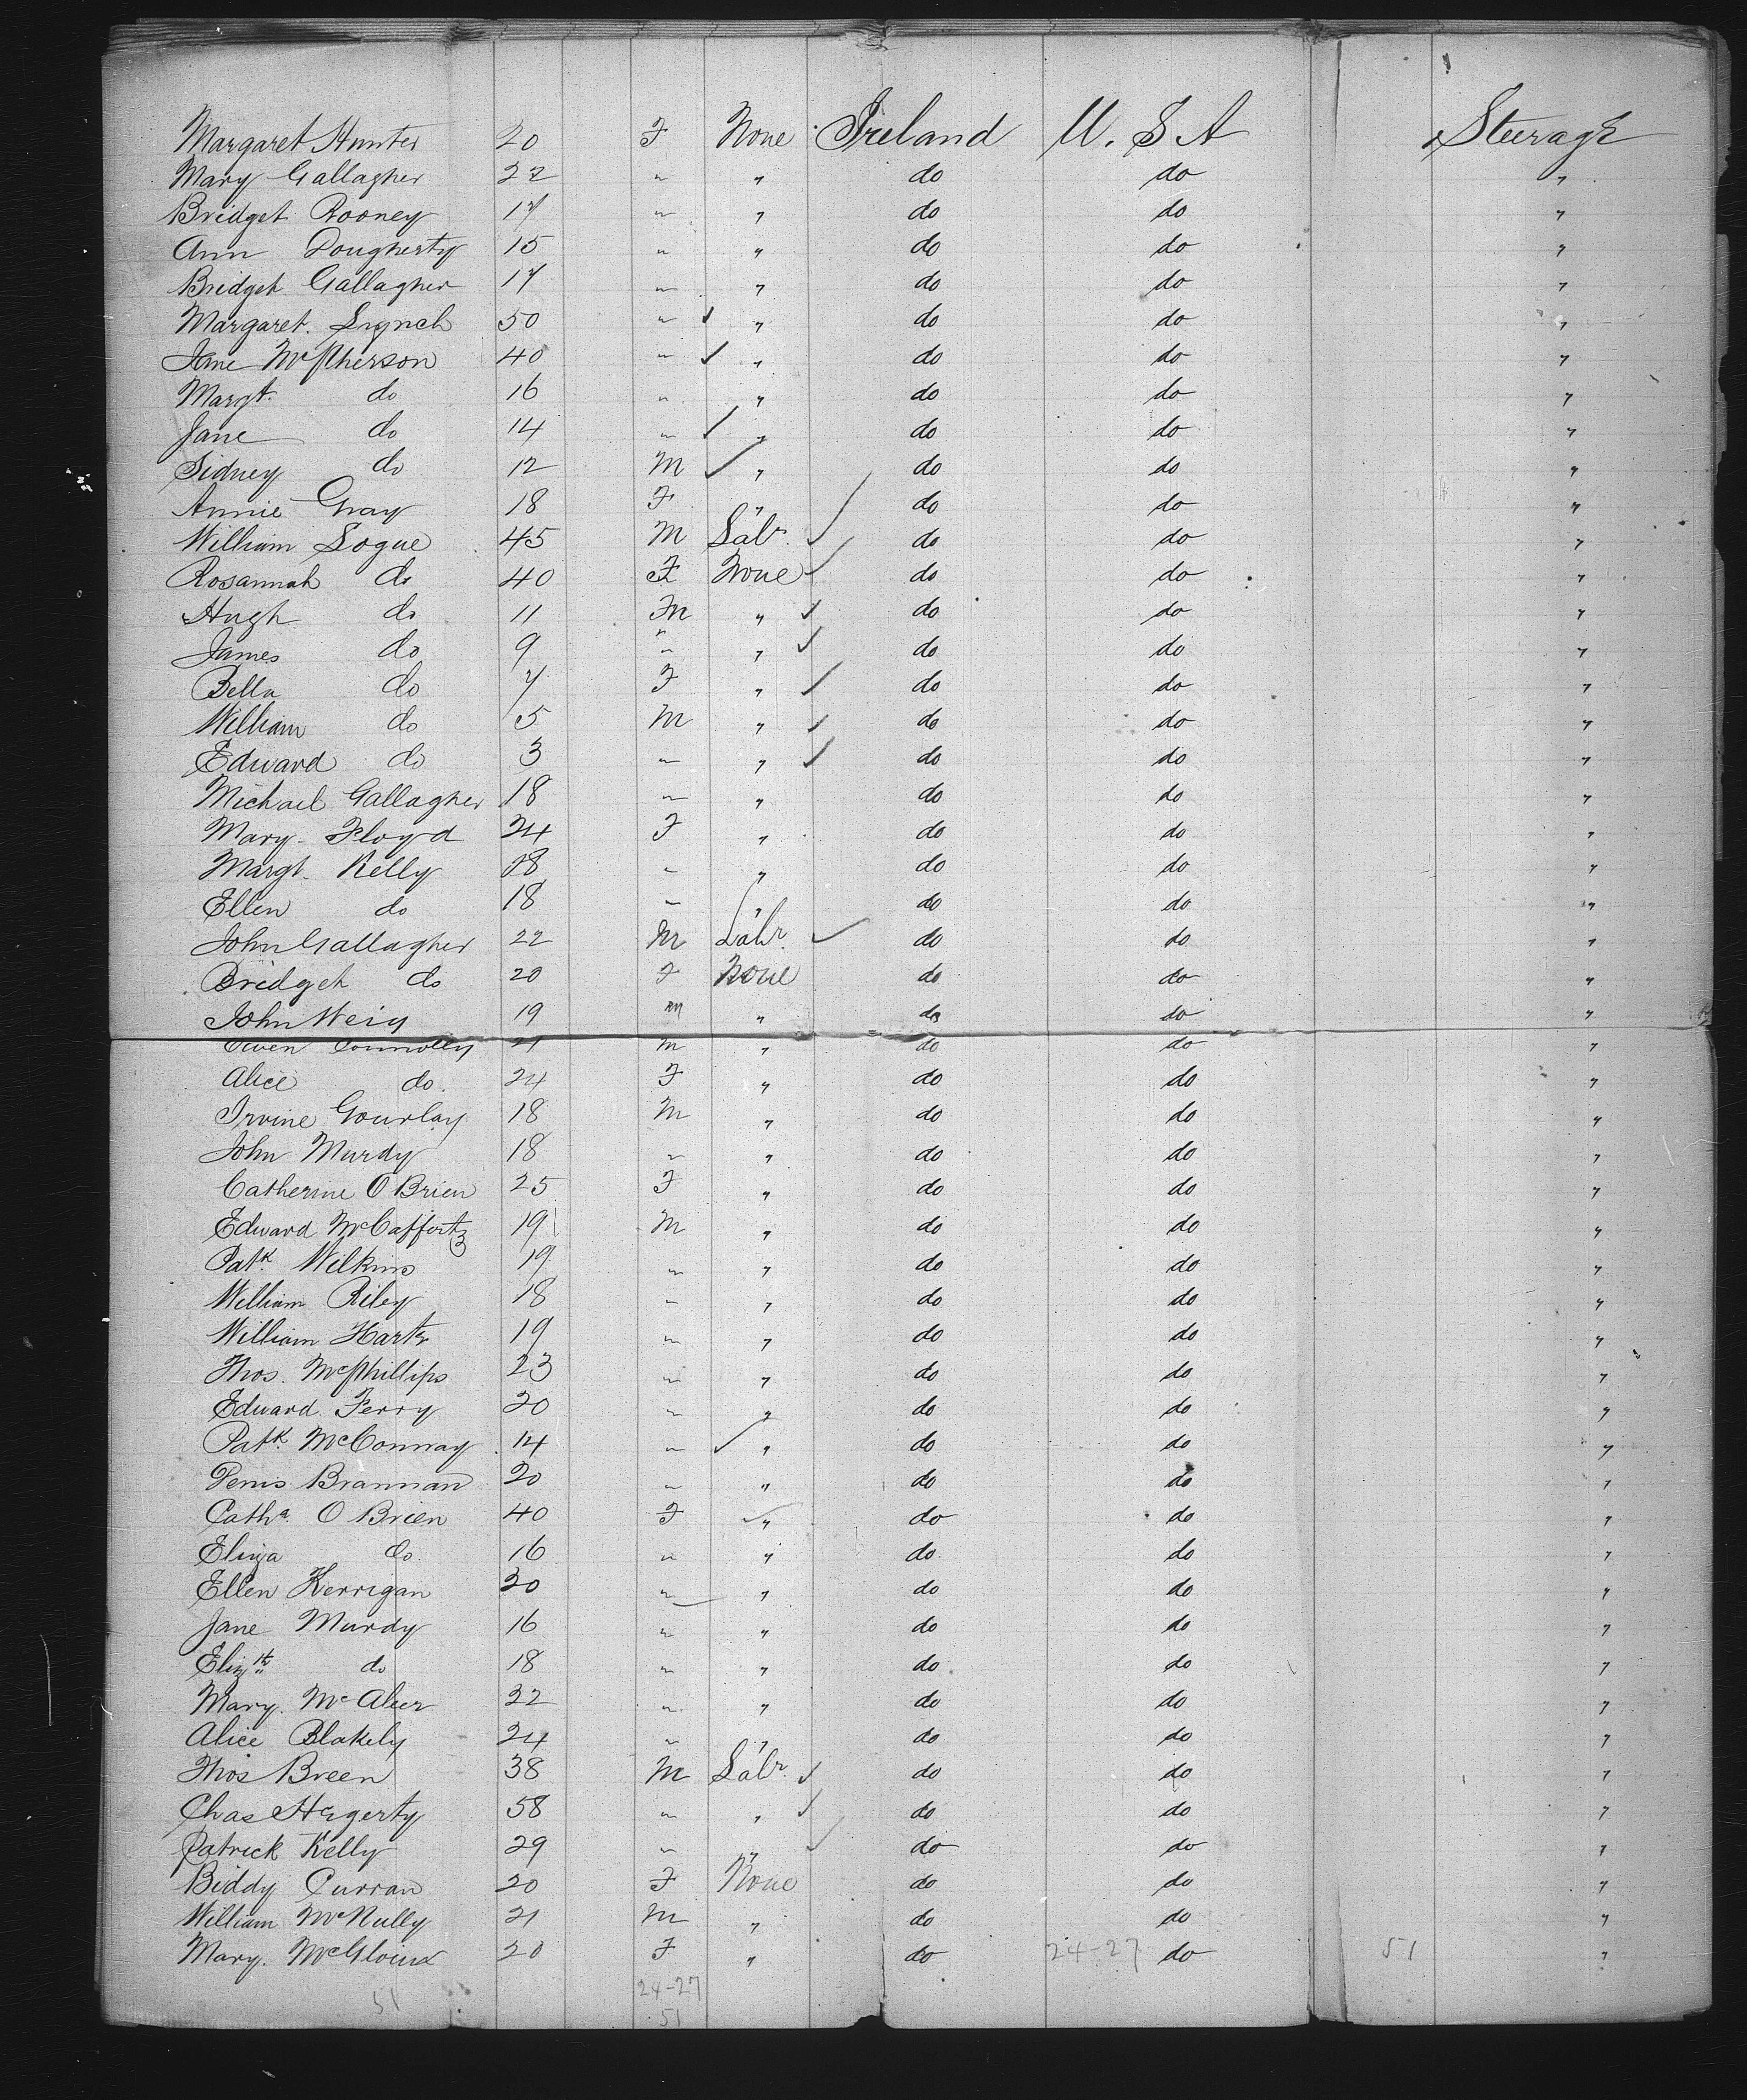 Margaret Hunter 20 F None Ireland U. S A Steerage
Mary Gallagher 22 " " do do "
Bridget Rooney 17 " " do do "
Ann Dougherty 15 " " do do "
Bridget Gallagher 17 " " do do "
Margaret Lynch 50 " " do do "
Jane McPherson 40 " " do do "
Margt. do 16 " " do do "
Jane do 14 " " do do "
Sidney do 12 M " do do "
Annie Gray 18 F " do do "
William Logue 45 M Labr. do do "
Rosannah do 40 F None do do "
Hugh do 11 M " do do "
James do 9 " " do do "
Bella do 7 F " do do "
William do 5 M " do do "
Edward do 3 " " do do "
Michael Gallagher 18 " " do do "
Mary Floyd 24 F " do do "
Margt. Kelly 18 " " do do "
Ellen do 18 " " do do "
John Gallagher 22 M Labr. do do "
Bridget do 20 F None do do "
John Weir 19 M " do do "
Owen Connolly 21 M " do do "
Alice do. 24 F " do do "
Irvine Gourlay 18 M " do do "
John Murdy 18 " " do do "
Catherine O Brien 25 F " do do "
Edward McCafferty 19 M " do do "
Patk. Wilkins 19 " " do do "
William Riley 18 " " do do "
William Harty 19 " " do do "
Thos. McPhillips 23 " " do do "
Edward Ferry 20 " " do do "
Patk. McConway 14 " " do do "
Denis Brannan 20 " " do do "
Catha. O Brien 40 F " do do "
Eliza do. 16 " " do do "
Ellen Kerrigan 20 " " do do "
Jane Murdy 16 " " do do "
Elizth do 18 " " do do "
Mary. McAleer 22 " " do do "
Alice Blakely 24 " " do do "
Thos Breen 38 M Labr. do do "
Chas Hegerty 58 " " do do "
Patrick Kelly 29 " " do do "
Biddy Curran 20 F None do do "
William McNully 21 M " do do "
Mary. McGloin 20 F " do 24-27 do 51 "
51 24-27
51